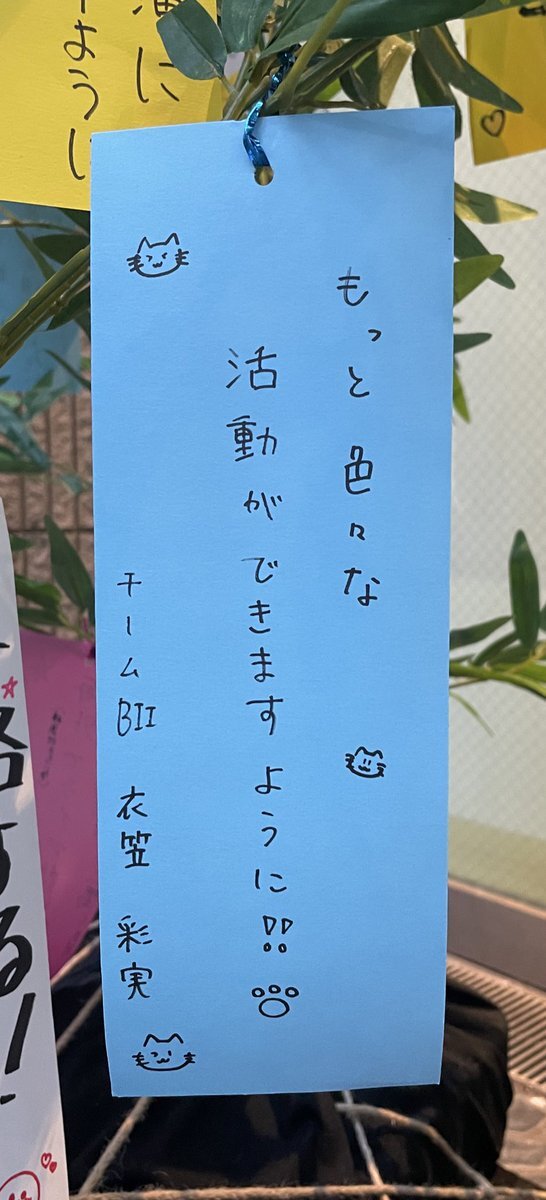 もっと色々な
活動ができますように!!
チームBII 衣笠 彩実
ように
する!